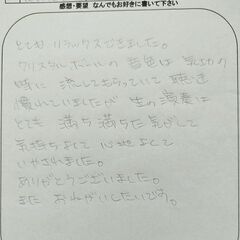 感想・要望 なんでもお好きに書いて下さい
とても リラックスできました。
クリスタルボールの 音色は
時に 流してもらっていて 聴き
慣れていましたが 生の演奏は
とても 満ち満ちた 気がして
気持ちよくて 心地よくて
いやされました。
ありがとうございました。
また おねがいしたいです。